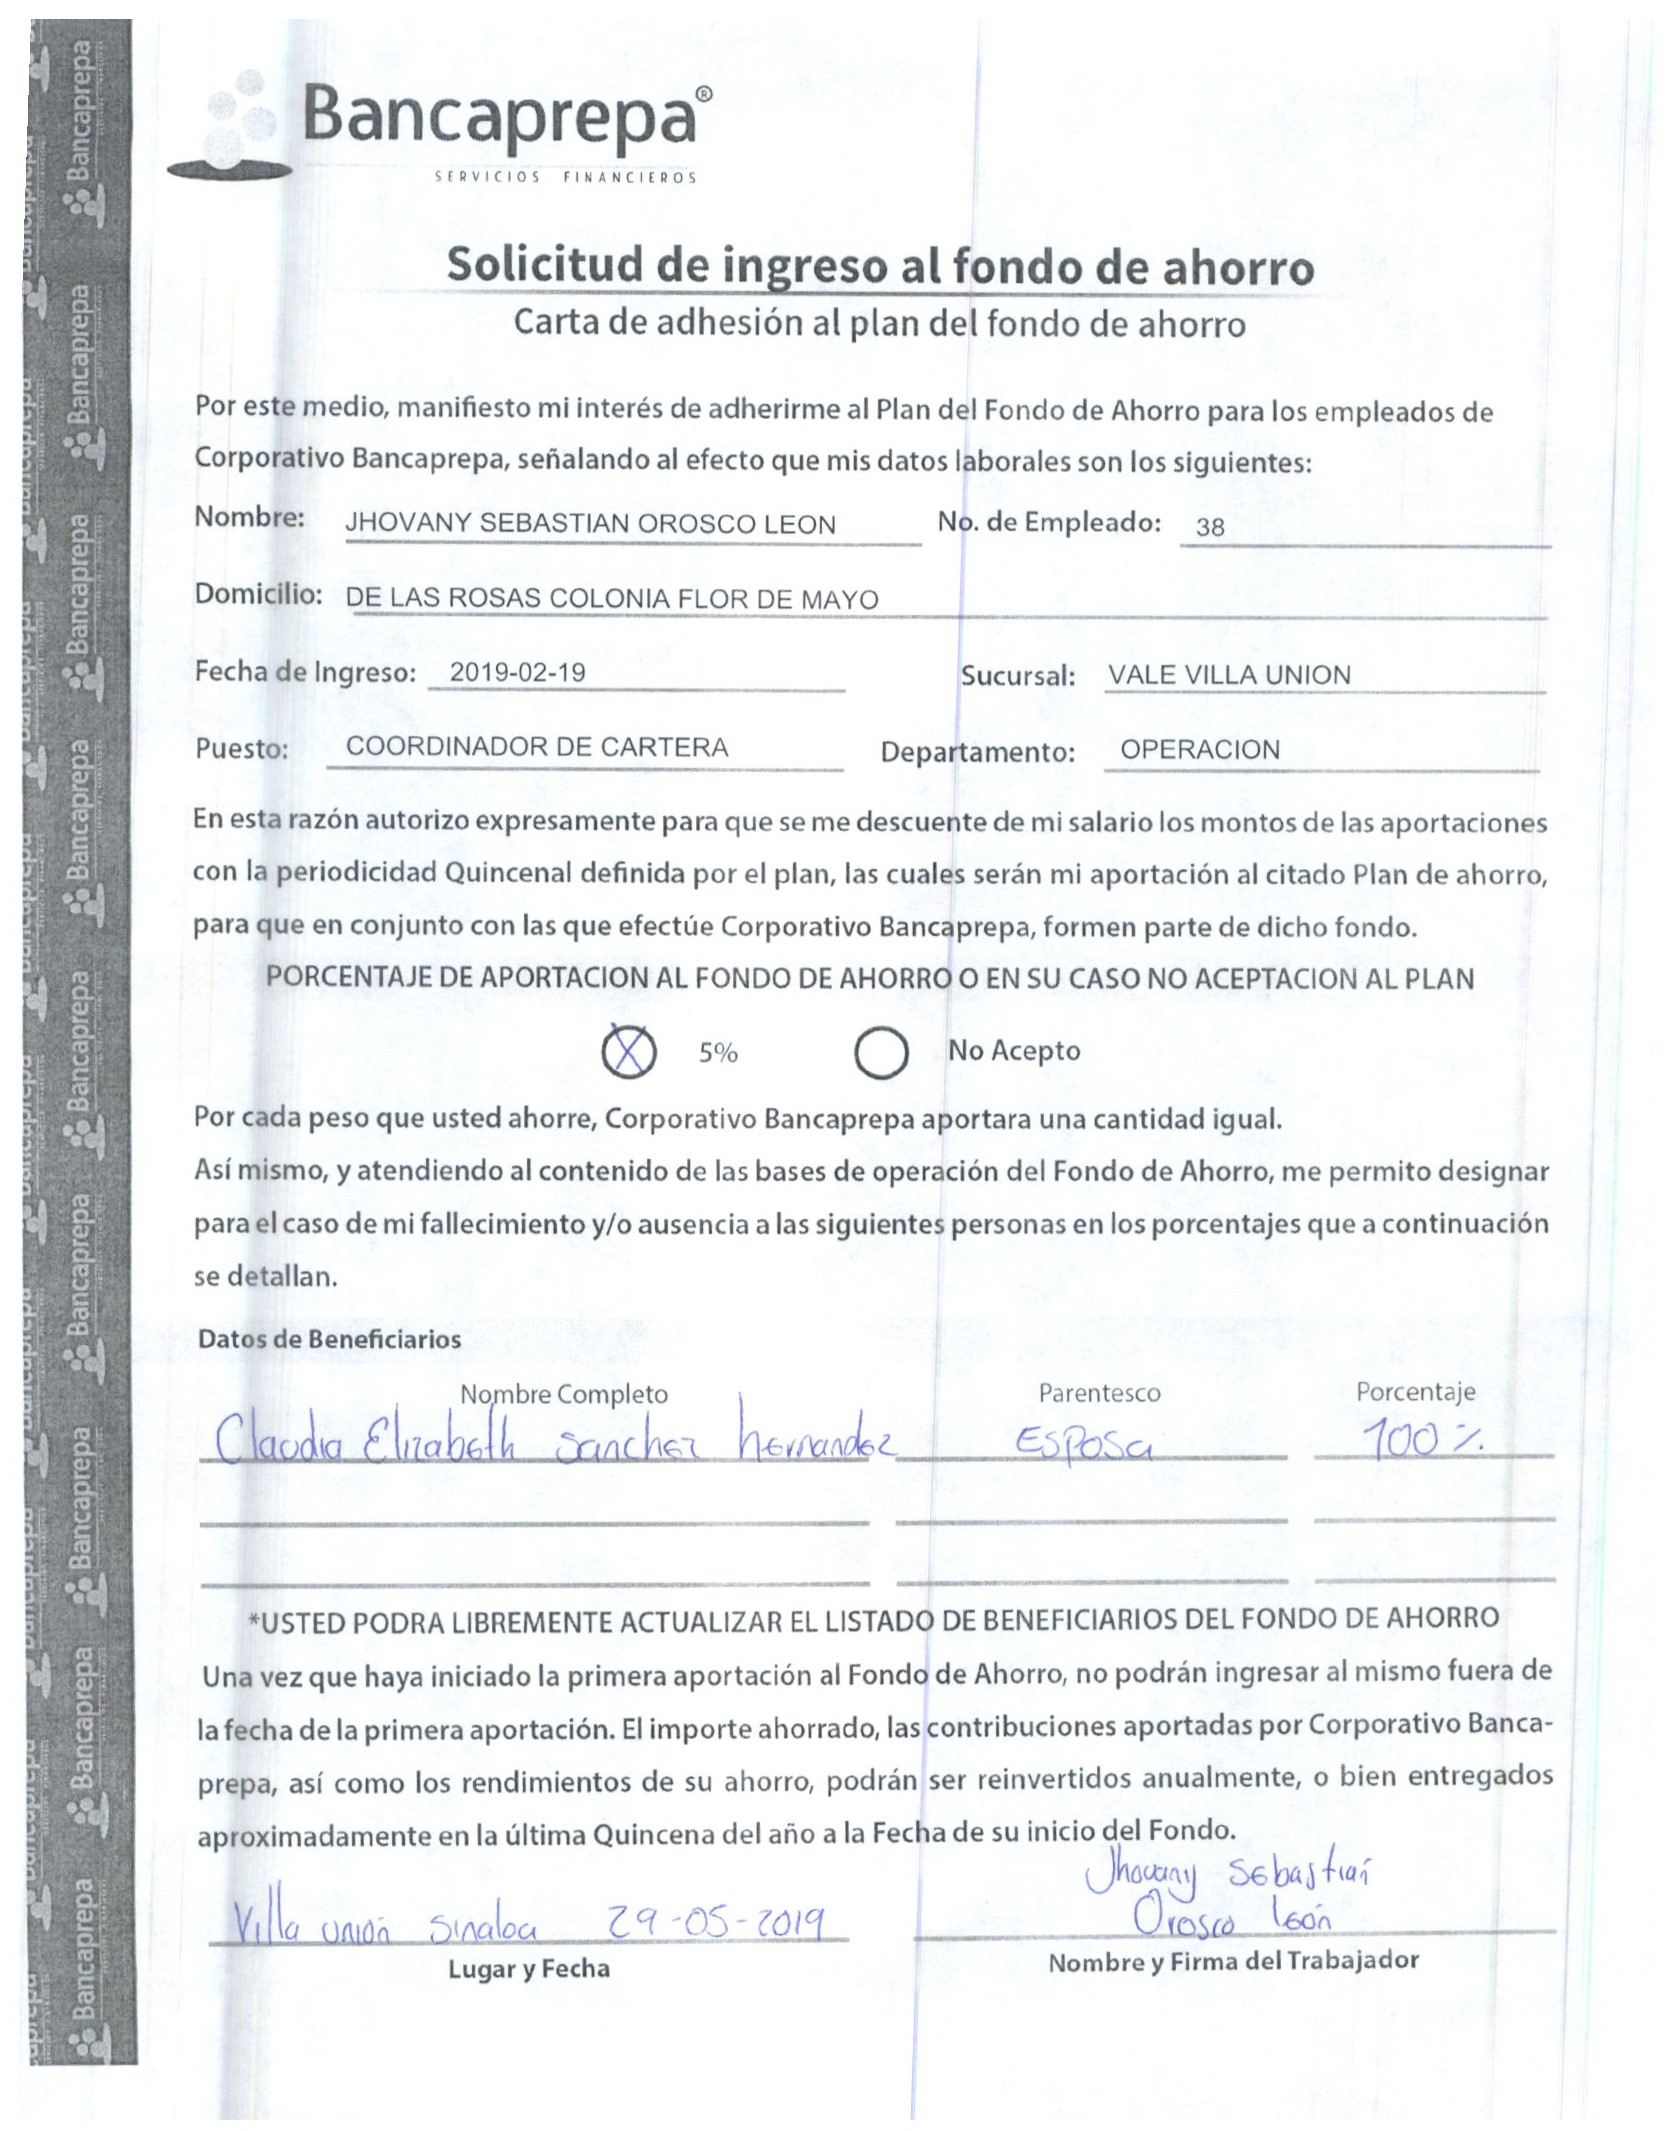 Bancaprepa®
SERVICIOS FINANCIEROS
Solicitud de ingreso al fondo de ahorro
Carta de adhesión al plan del fondo de ahorro
Por este medio, manifiesto mi interés de adherirme al Plan del Fondo de Ahorro para los empleados de
Corporativo Bancaprepa, señalando al efecto que mis datos laborales son los siguientes:
Nombre: JHOVANY SEBASTIAN OROSCO LEON No. de Empleado: 38
Domicilio: DE LAS ROSAS COLONIA FLOR DE MAYO
Fecha de Ingreso: 2019-02-19 Sucursal: VALE VILLA UNION
Puesto: COORDINADOR DE CARTERA Departamento: OPERACION
En esta razón autorizo expresamente para que se me descuente de mi salario los montos de las aportaciones
con la periodicidad Quincenal definida por el plan, las cuales serán mi aportación al citado Plan de ahorro,
para que en conjunto con las que efectúe Corporativo Bancaprepa, formen parte de dicho fondo.
PORCENTAJE DE APORTACION AL FONDO DE AHORRO O EN SU CASO NO ACEPTACION AL PLAN
X 5% No Acepto
Por cada peso que usted ahorre, Corporativo Bancaprepa aportara una cantidad igual.
Así mismo, y atendiendo al contenido de las bases de operación del Fondo de Ahorro, me permito designar
para el caso de mi fallecimiento y/o ausencia a las siguientes personas en los porcentajes que a continuación
se detallan.
Datos de Beneficiarios
Nombre Completo Parentesco Porcentaje
Claudia Elizabeth Sanchez hernandez Esposa 100%
*USTED PODRA LIBREMENTE ACTUALIZAR EL LISTADO DE BENEFICIARIOS DEL FONDO DE AHORRO
Una vez que haya iniciado la primera aportación al Fondo de Ahorro, no podrán ingresar al mismo fuera de
la fecha de la primera aportación. El importe ahorrado, las contribuciones aportadas por Corporativo Banca-
prepa, así como los rendimientos de su ahorro, podrán ser reinvertidos anualmente, o bien entregados
aproximadamente en la última Quincena del año a la Fecha de su inicio del Fondo.
Jhovany Sebastian
Orosco León
Villa Unión Sinaloa 29-05-2019
Lugar y Fecha
Nombre y Firma del Trabajador
Bancaprepa
Bancaprepa
Bancaprepa
Bancaprepa
Bancaprepa
Bancaprepa
Bancaprepa
Bancaprepa
Bancaprepa